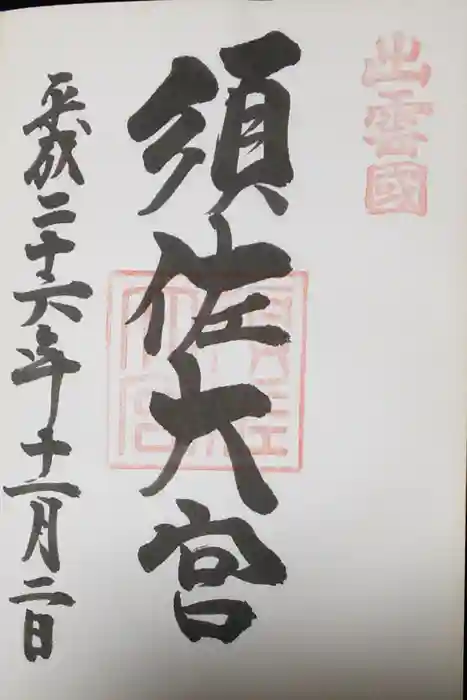 出雲國
須佐大宮
須佐大宮
平成二十六年十一月二日